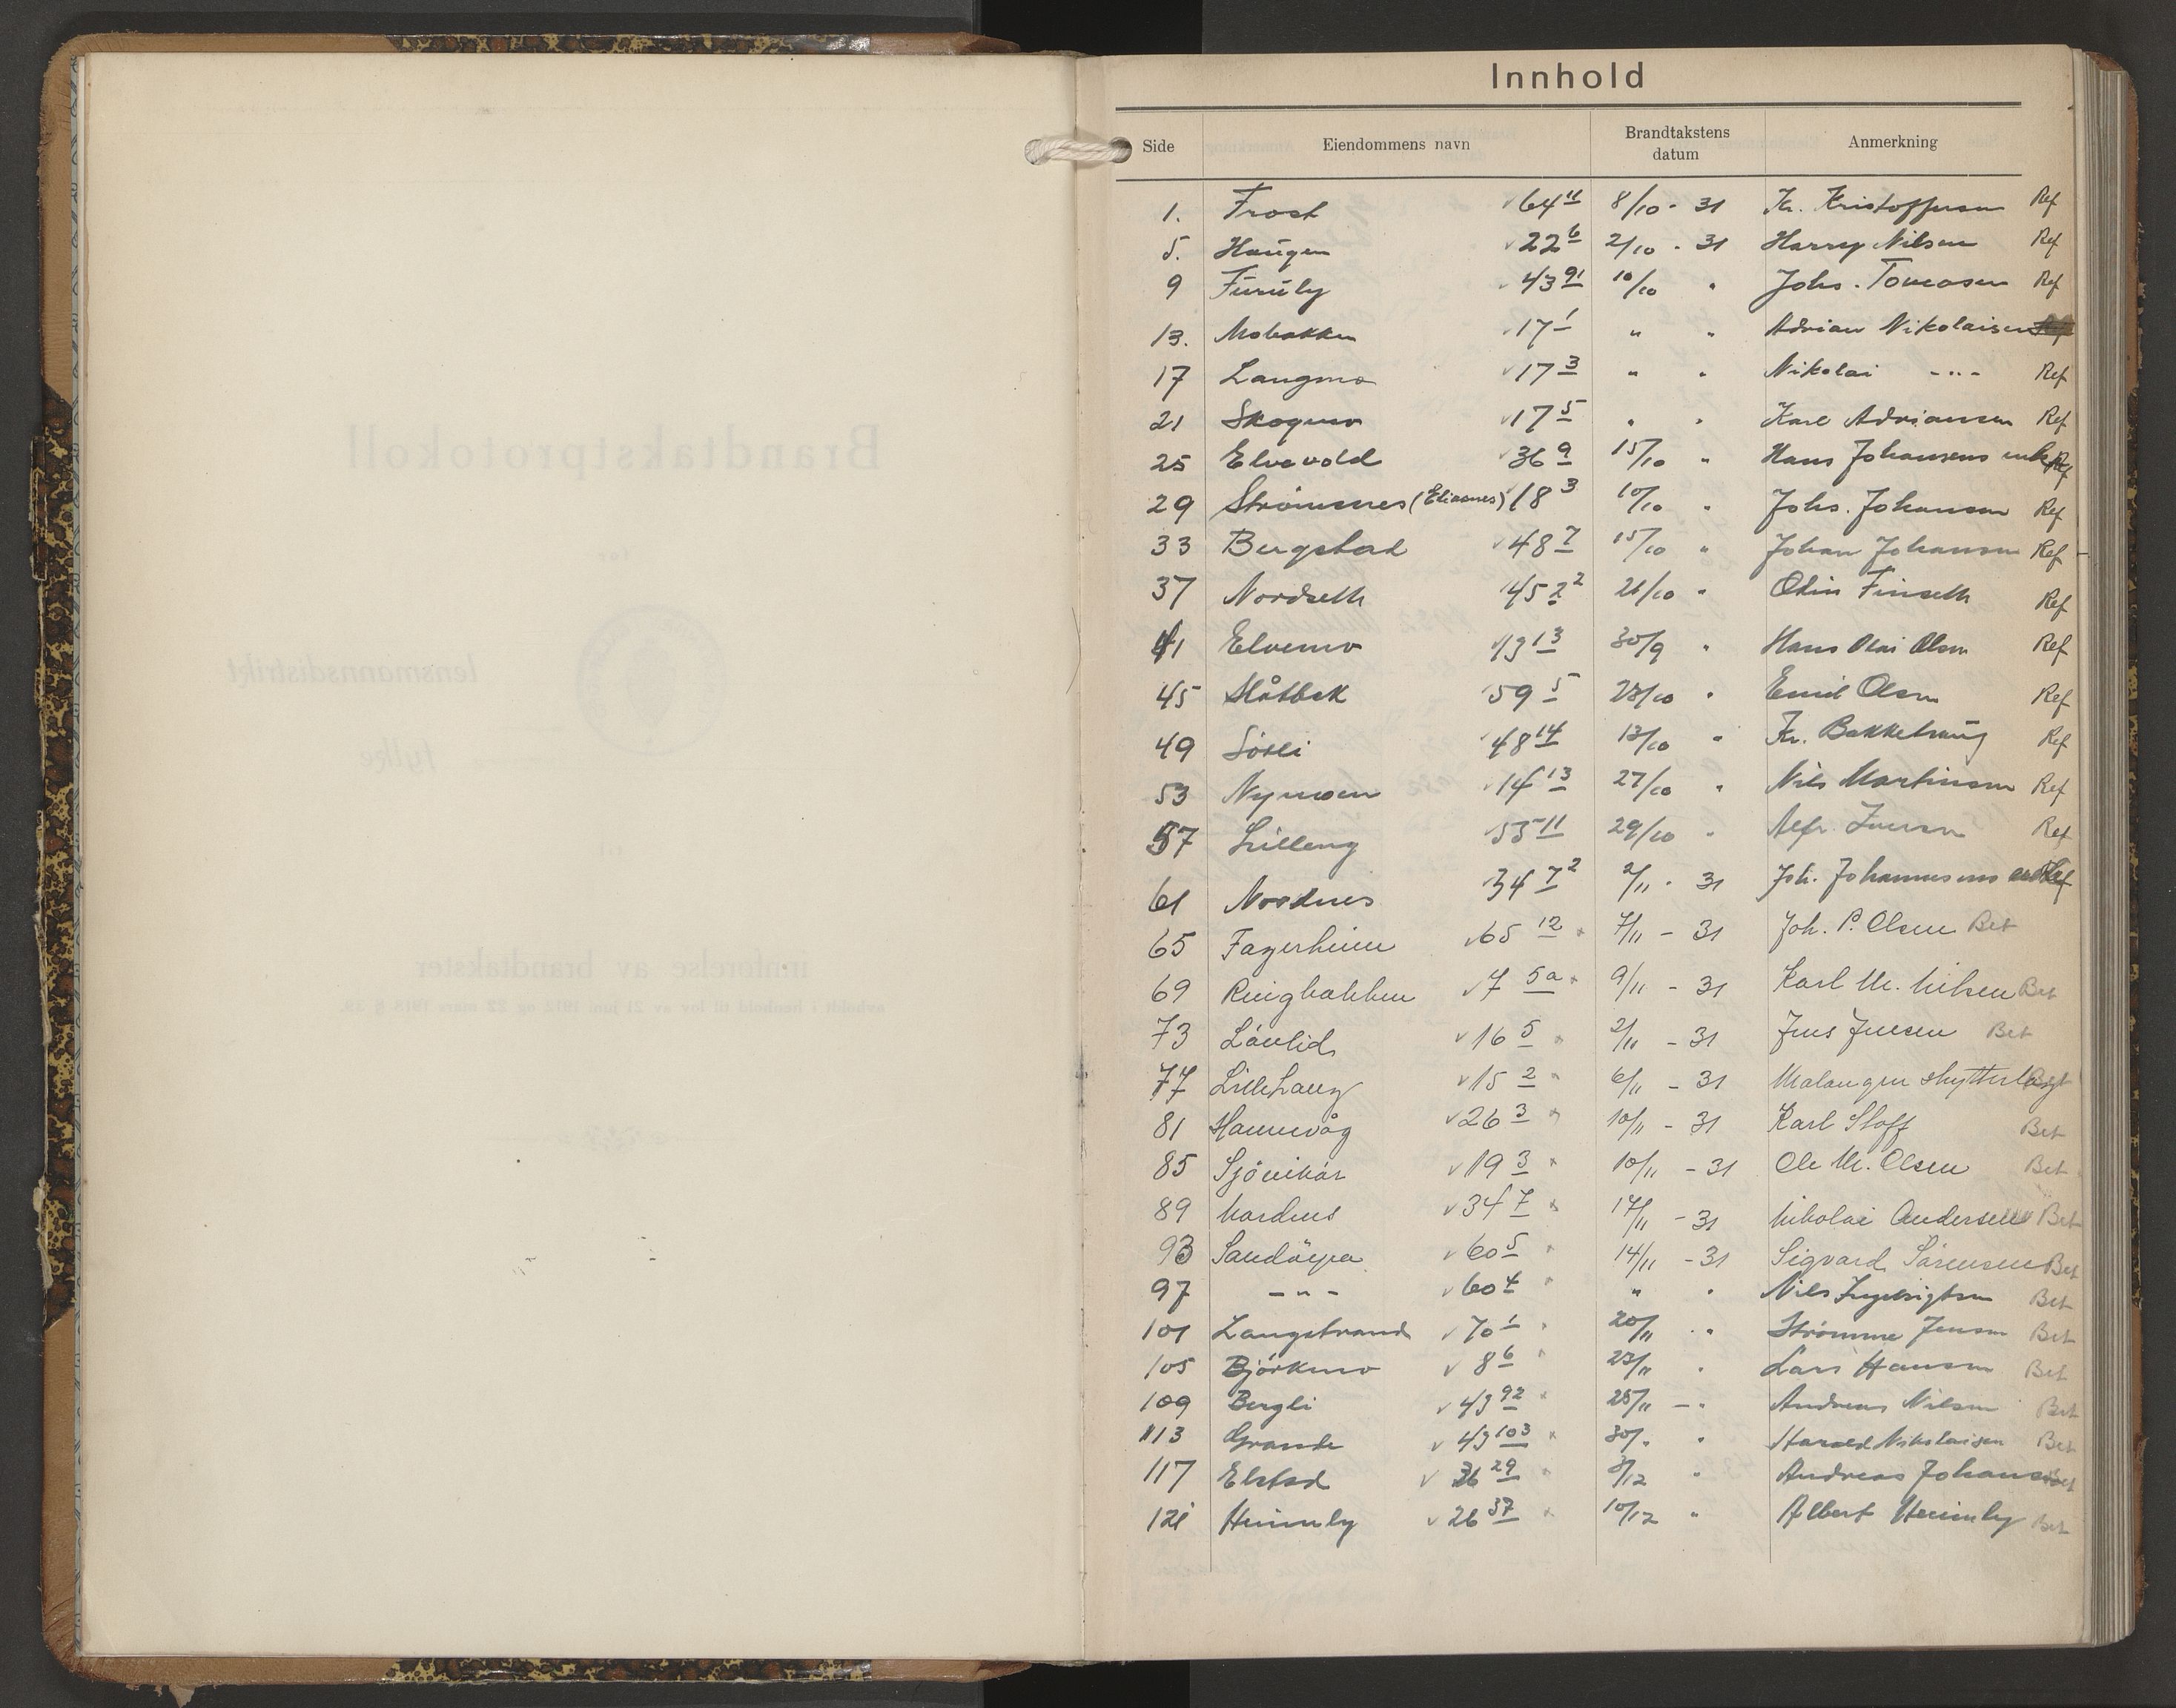 Innhold
Side Eiendommens navn Brandtakstens datum Anmerkning
1. Frost 64 11 8/10 - 31 Kr. Kristoffersen Ref
5. Haugen 22 6 2/10 - 31 Harry Nilsen Ref
9 Furuly 43 91 10/10 " Johs. Tomasen Ref
13. Mobakken 17 1 " " Adrian Nikolaisen
17 Langmo 17 3 " " Nikolai -"- Ref
21 Skogmo 17 5 " " Karl Adriansen Ref
25 Elvevold 36 9 15/10 " Hans Johansens enke Ref
29 Strømsnes (Eliasnes) 18 3 10/10 " Johs. Johansen Ref
33 Bergstad 48 7 15/10 " Johan Johansen Ref
37 Nordseth 45 2 2 26/10 " Odin Finseth Ref
41 Elvemo 43 13 30/9 " Hans Olai Olsen Ref
45 Slåtbek 59 5 23/10 " Emil Olsen Ref
49 Lösli 48 14 13/10 " Kr. Bakkehaug Ref
53 Nymoen 14 13 27/10 " Nils Martinsen Ref
57 Lilleng 53 11 29/10 " Alfr. Iversen Ref
61 Nordnes 34 7 2 2/11 - 31 Joh. Johannesens Ref
65 Fagerheim 65 12 7/11 - 31 Joh. P. Olsen Bet
69 Ringbakken 7 5a 9/11 - 31 Karl M. Nilsen Bet
73 Lövlid 16 5 2/11 - 31 Jens Jensen Bet
77 Lillehaug 15 2 6/11 - 31 Malangen skytterlag Bet
81 Hamnvåg 26 3 10/11 - 31 Karl Stoff Bet
85 Sjövikør 19 3 10/11 - 31 Ole M. Olsen Bet
89 Nordnes 34 7 17/11 - 31 Nikolai Andersen Bet
93 Sandöyra 60 5 14/11 - 31 Sigvard Sörensen Bet
97 -"- 60 4 " " Nils Ingebrigtsen Bet
101 Langstrand 70 1 20/11 " Strömme Jensen Bet
105 Björkmo 8 6 23/11 " Lars Hansen Bet
109 Bergli 43 92 28/11 -" Andreas Nilsen Bet
113 Grande 43 103 30/" " Harald Nikolaisen Bet
117 Elstad 36 29 3/12 " Andreas Johansen Bet
121 Heimly 26 37 10/12 " Albert Heimly Bet